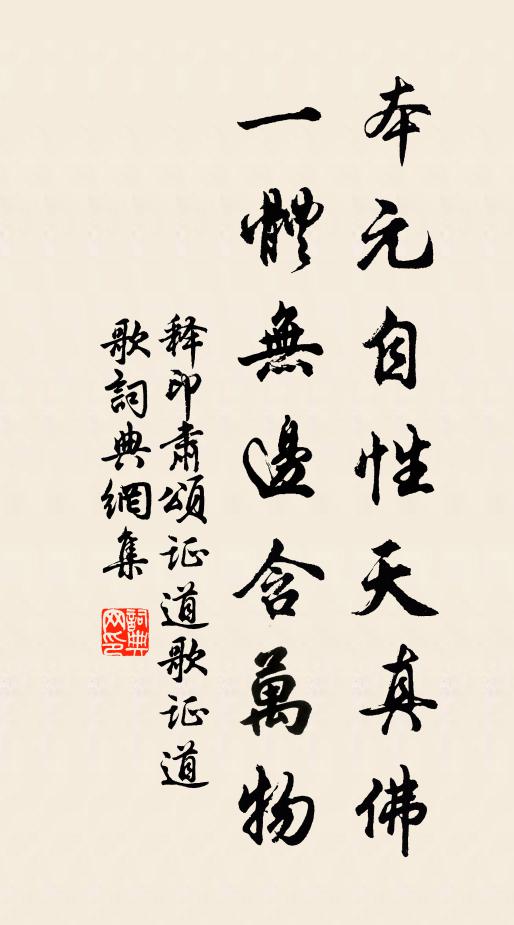 本元自性天真佛
一體無邊含萬物
释印肃頌证道歌证道
歌詞典網集
詞典網印